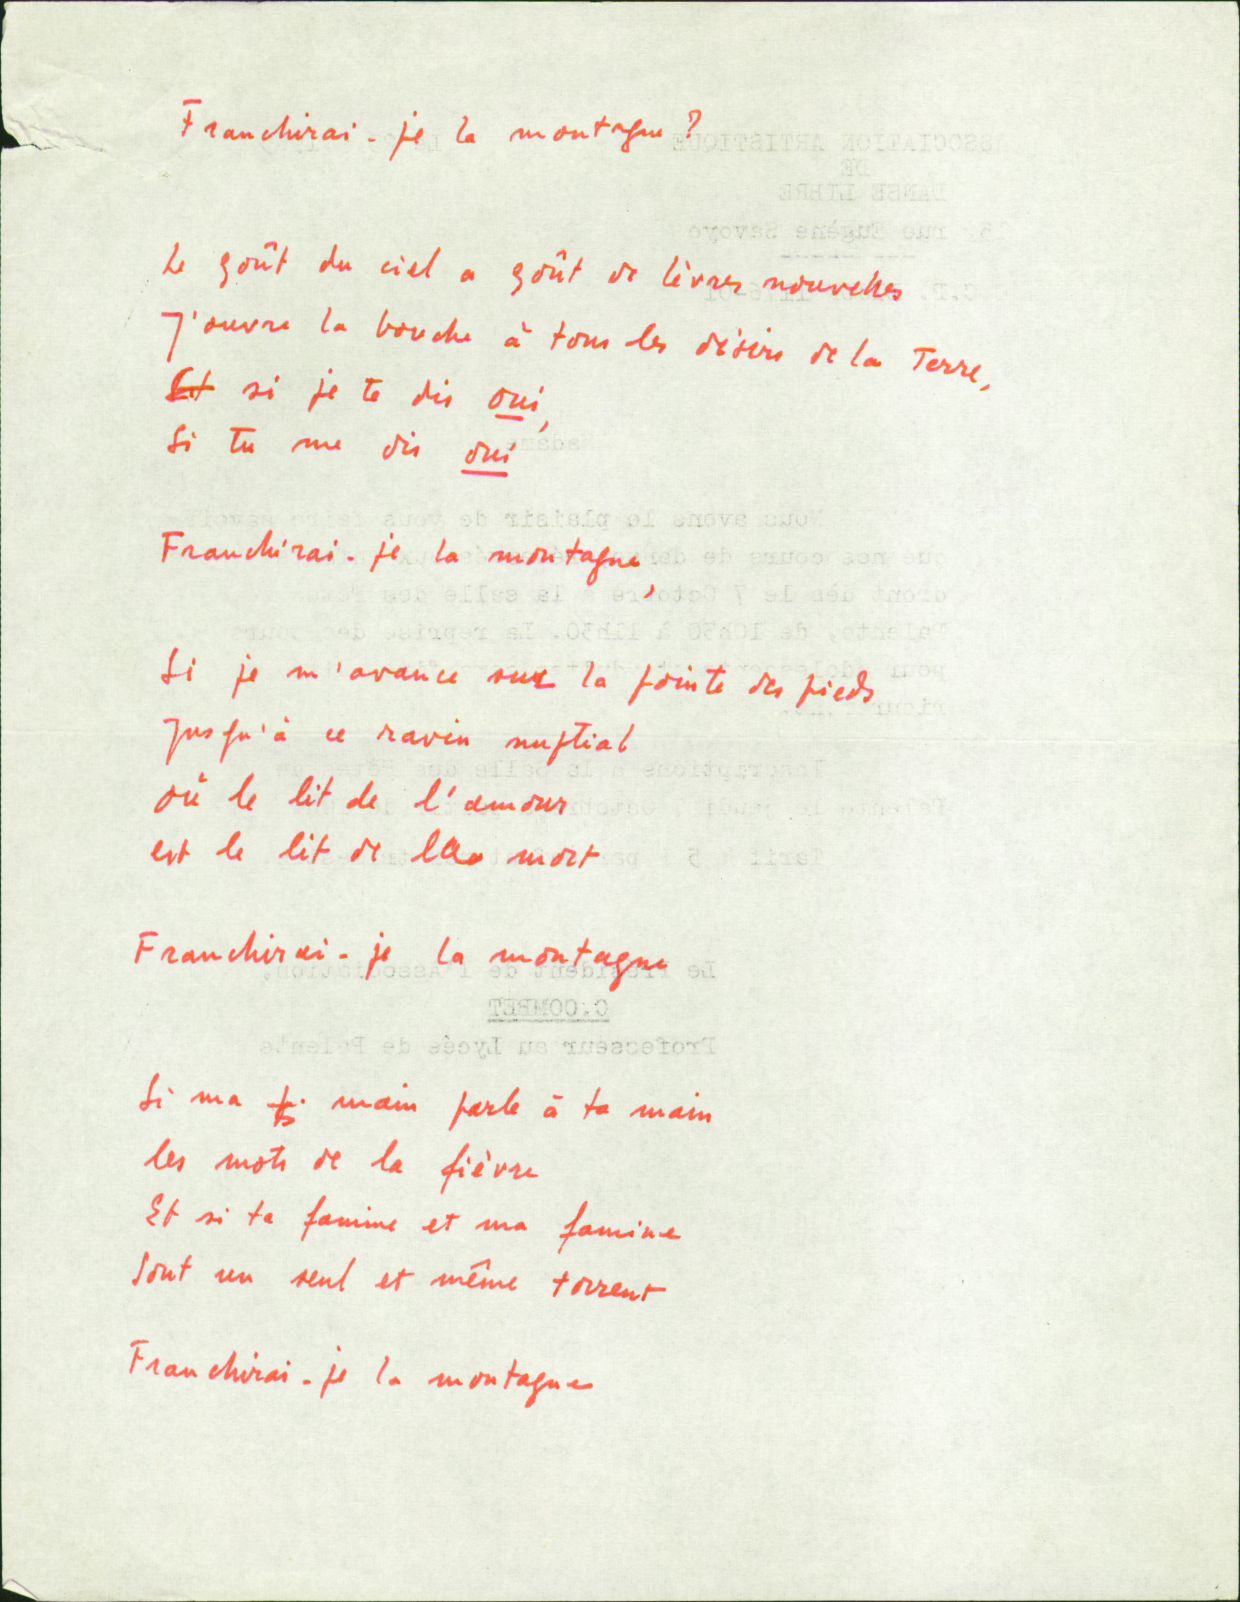 Franchirai-je la montagne ?
Le goût du ciel a goût de lèvres nouvelles
J'ouvre la bouche à tous les désirs de la Terre,
Et si je te dis oui,
Si tu me dis oui
Franchirai-je la montagne,
Si je m'avance sur la pointe des pieds
Jusqu'à ce ravin nuptial
où le lit de l'amour
est le lit de la mort
Franchirai-je la montagne
Si ma main parle à ta main
les mots de la fièvre
Et si ta famine et ma famine
Sont un seul et même torrent
Franchirai-je la montagne